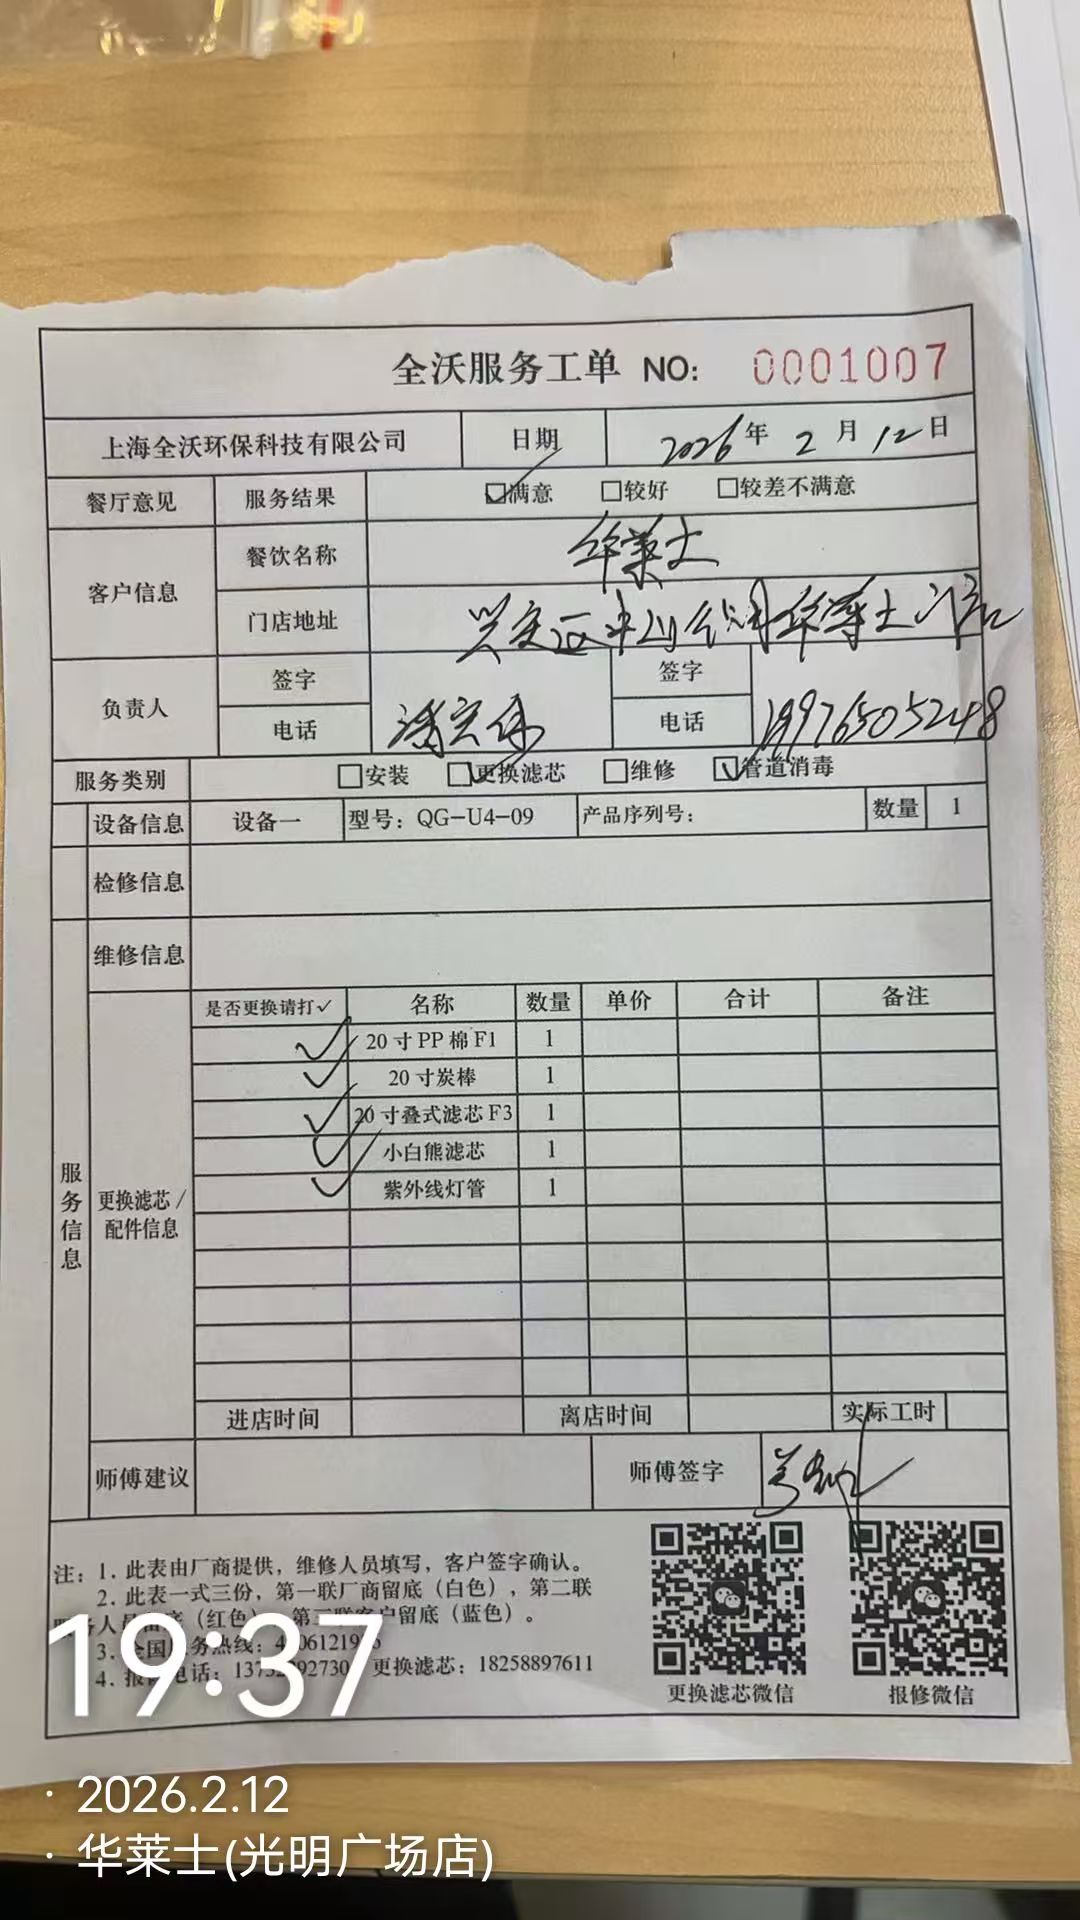 全沃服务工单 NO: 0001007
上海全沃环保科技有限公司 日期 2026年 2月 12日
餐厅意见 服务结果 ☑满意 □较好 □较差不满意
客户信息 餐饮名称 华莱士
门店地址 华莱士门店
负责人 签字 签字
电话 电话 19976505248
服务类别 □安装 ☑更换滤芯 □维修 ☑管道消毒
设备信息 设备一 型号: QG-U4-09 产品序列号: 数量 1
检修信息
维修信息
服务信息
更换滤芯/
配件信息
是否更换请打✓ 名称 数量 单价 合计 备注
✓ 20寸PP棉F1 1
✓ 20寸炭棒 1
✓ 20寸叠式滤芯F3 1
✓ 小白熊滤芯 1
✓ 紫外线灯管 1
进店时间 离店时间 实际工时
师傅建议 师傅签字
注: 1. 此表由厂商提供，维修人员填写，客户签字确认。
2. 此表一式三份，第一联厂商留底（白色），第二联
人员留底（红色），第三联客户留底（蓝色）。
3. 全国服务热线:
4. 电话: 更换滤芯: 18258897611
更换滤芯微信 报修微信
19:37
· 2026.2.12
· 华莱士(光明广场店)